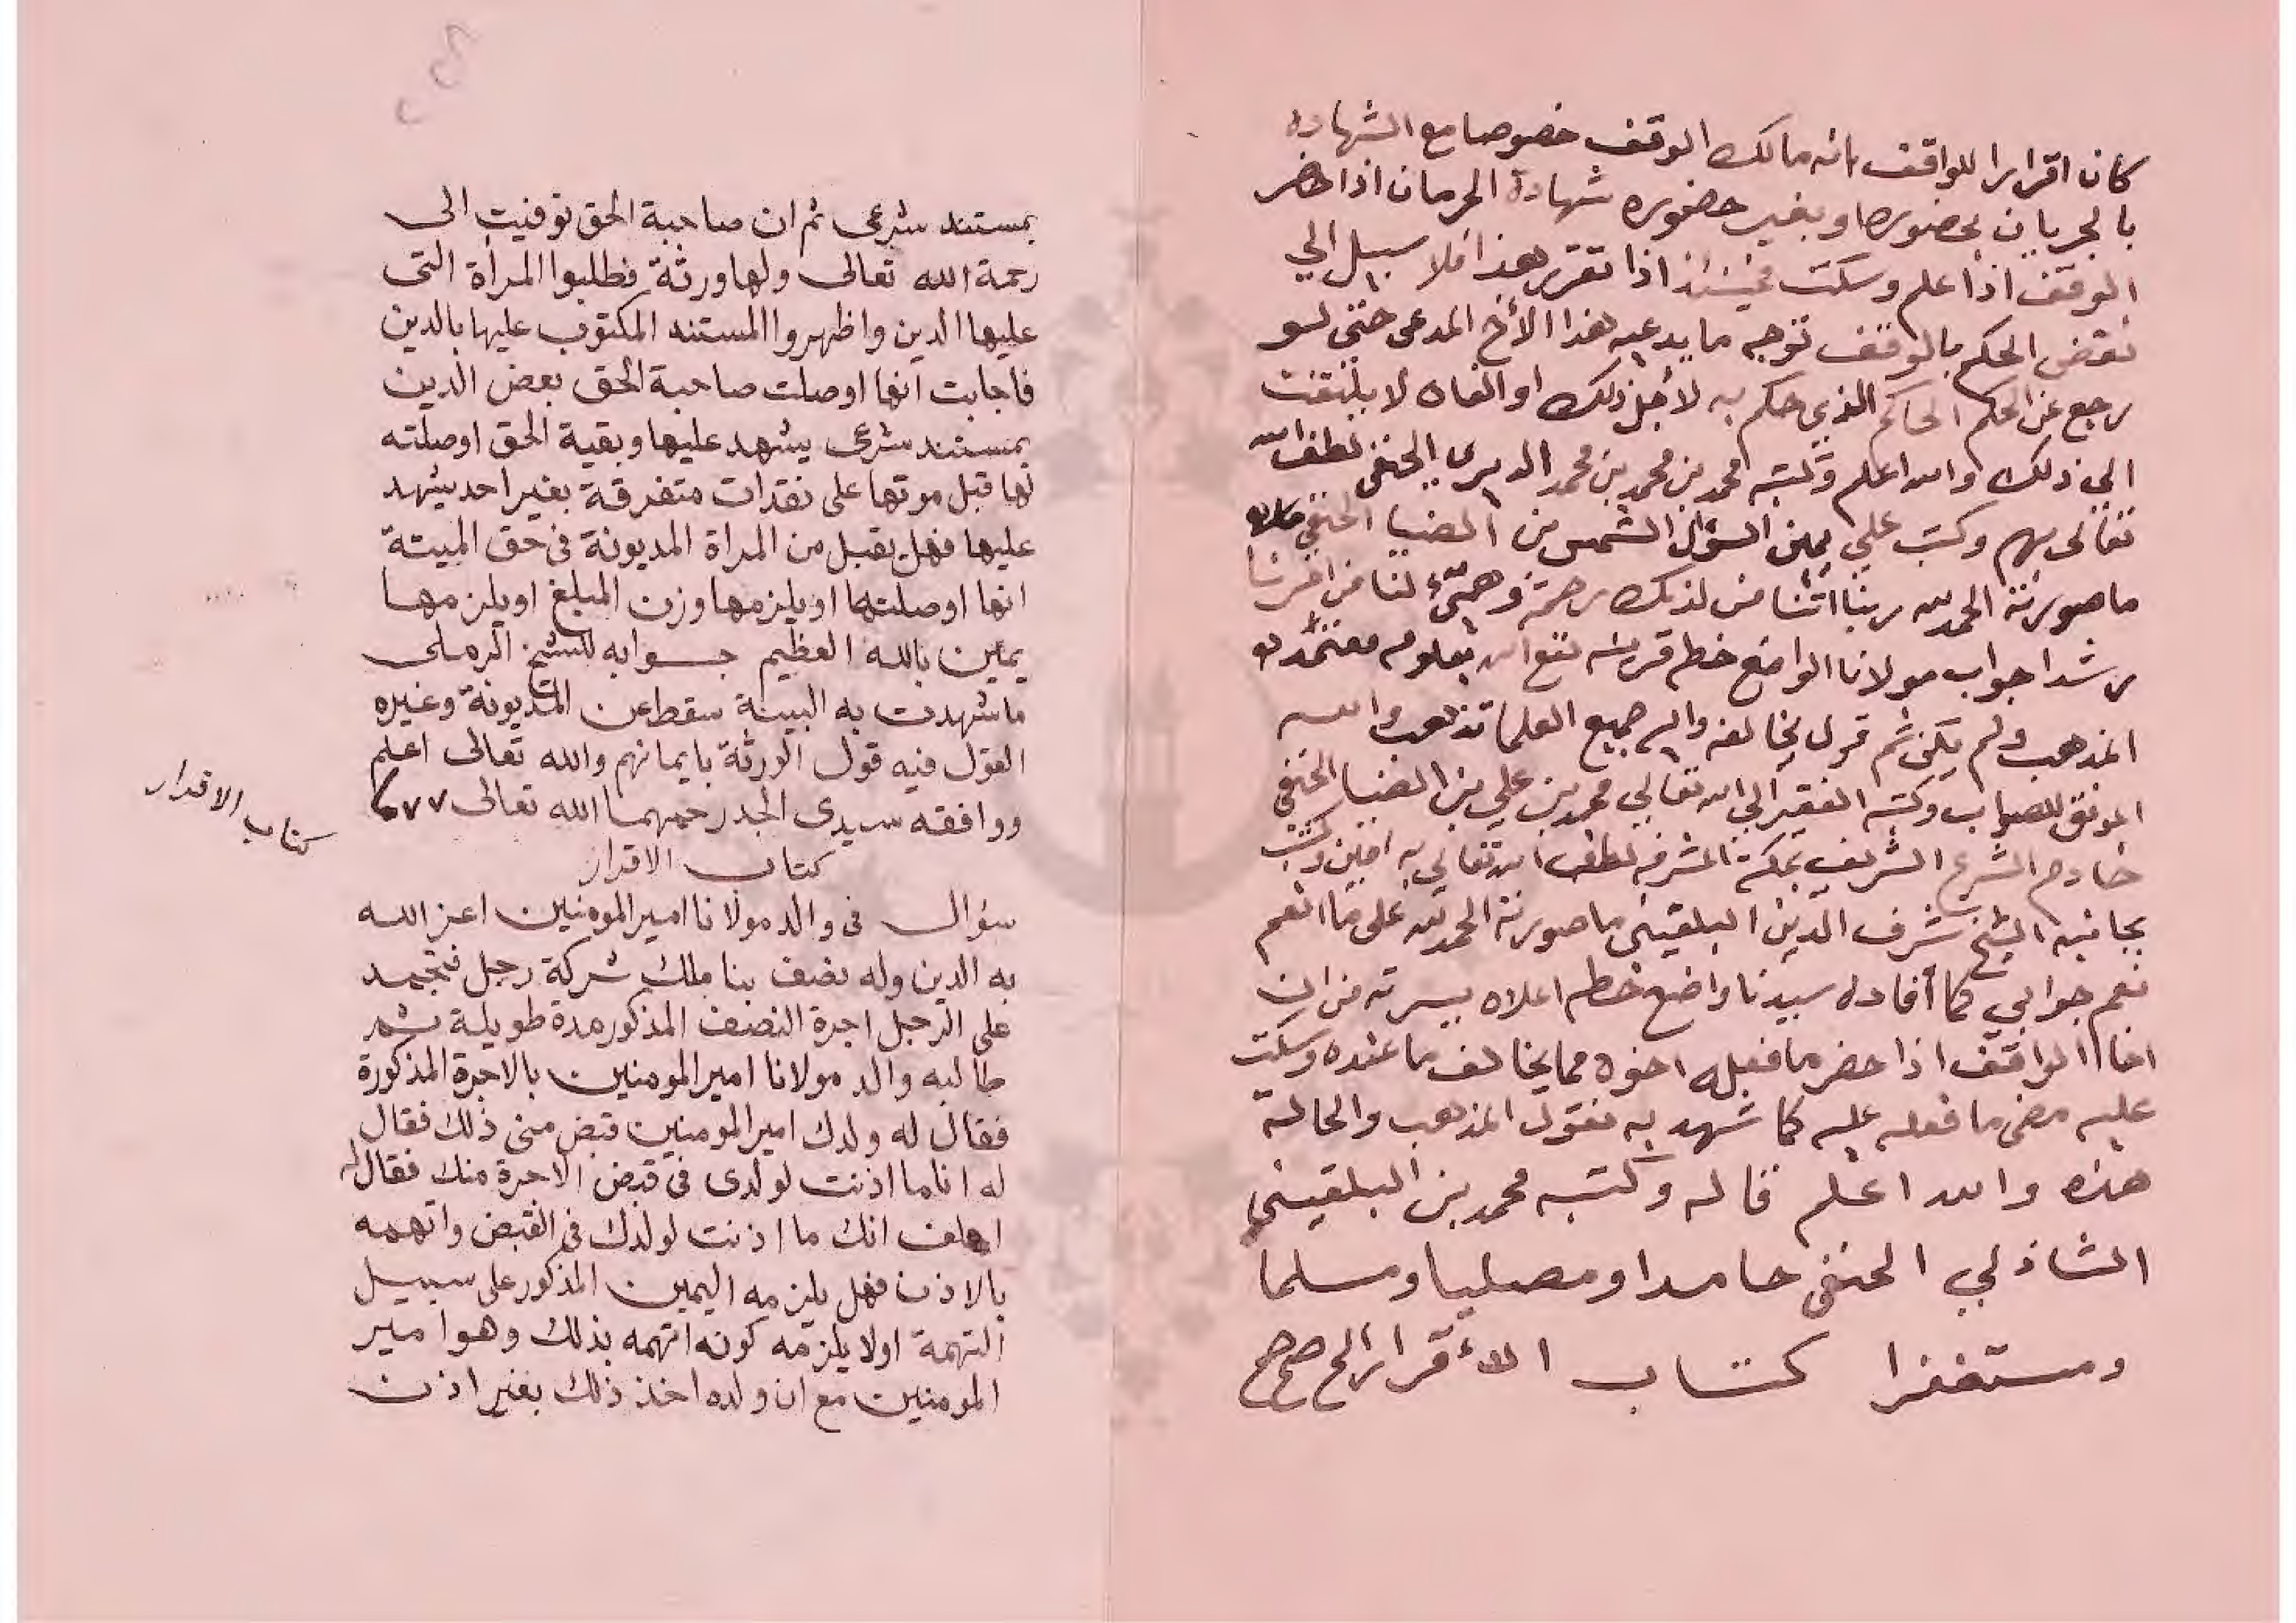 كان اقرارا للواقف بانه مالك الوقف خصوصا مع الشهادة
بالجريان بحضوره او بغير حضوره شهادة الحرمان اذا حضر
الوقف اذا علم وسكت فحينئذ اذا تقرر هذا فلا سبيل الي
نقض الحكم بالوقف توجه ما يدعيه هذا الأخ المدعى حتى لو
رجع عن الحكم الحاكم الذي حكم به لأجل ذلك او الغاه لا يلتفت
الي ذلك والله اعلم وكتبه محمد بن محمد بن محمد الديري الحنفي لطف الله
تعالى بهم وكتب علي يمين السؤال الشمس بن الضيا الحنفي
ما صورته الحمد لله ربنا اتنا من لدنك رحمة وهيئ لنا من امرنا
رشدا جواب مولانا الواضع خطه قرينه نفع الله بعلومه معتمد
المذهب ولم يكن ثم قول يخالفه واليه جميع العلما تذهب والله
الموفق للصواب وكتبه الفقير الي الله تعالي محمد بن علي بن الضيا الحنفي
خادم الشرع الشريف بمكة المشرفه لطف الله تعالي به امين وكتب
بجانبه الشيخ شرف الدين البلقيني ما صورته الحمد لله على ما انعم
نعم جوابي كما أفاده سيدنا واضع خطه اعلاه يسرته من ان
اخا الواقف اذا حضر ما فعله اخوه مما يخالف ما عنده وسكت
عليه مضى ما فعله عليه كما شهد به نقول المذهب والحالة
هذه والله اعلم قاله وكتبه محمد بن البلقيني
الشاذلي الحنفى حامدا ومصليا ومسلما
ومستغفرا كتاب الأقرار الخ صح صح
بمستند شرعى ثم ان صاحبة الحق توفيت الى
رحمة الله تعالى ولها ورثة فطلبوا المرأة التى
عليها الدين واظهروا المستند المكتوب عليها بالدين
فاجابت انها اوصلت صاحبة الحق بعض الدين
بمستند شرعى يشهد عليها وبقية الحق اوصلته
لها قبل موتها على نقدات متفرقة بغير احد يشهد
عليها فهل يقبل من المراة المديونة فى حق الميتة
انها اوصلتها او يلزمها وزن المبلغ او يلزمها
يمين بالله العظيم جوابه للشيخ الرملى
ما شهدت به البينة سقط عن المديونة وغيره
القول فيه قول الورثة بايمانهم والله تعالى اعلم
ووافقه سيدى الجد رحمهما الله تعالى
كتاب الاقرار
كتاب الاقرار
سؤال فى والد مولانا امير المومنين اعز الله
به الدين وله نصف بنا ملك شركة رجل فتجمد
على الرجل اجرة النصف المذكور مدة طويلة ثم
طالبه والد مولانا امير المومنين بالاجرة المذكورة
فقال له ولدك امير المومنين قبض منى ذلك فقال
له انا ما اذنت لولدى فى قبض الاجرة منك فقال له
احلف انك ما اذنت لولدك فى القبض واتهمه
بالاذن فهل يلزمه اليمين المذكور على سبيل
التهمة اولا يلزمه كونه اتهمه بذلك وهو امير
المومنين مع ان ولده اخذ ذلك بغير اذن